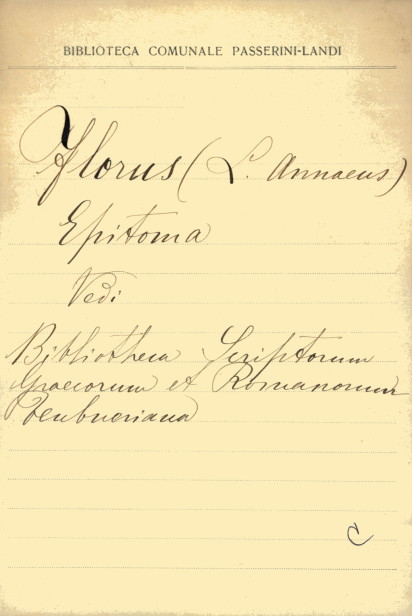 BIBLIOTECA COMUNALE PASSERINI-LANDI
Florus (L. Annaeus)
Epitoma
Vedi
Bibliotheca Scriptorum
Graecorum et Romanorum
Teubneriana
C